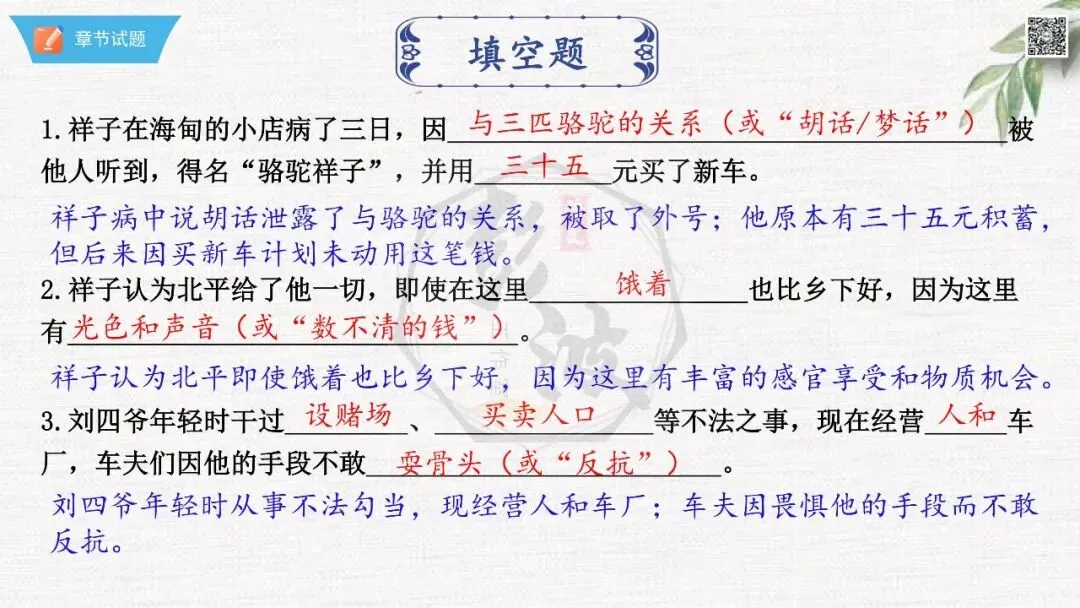 章节试题
填空题
1.祥子在海甸的小店病了三日，因 与三匹骆驼的关系（或“胡话/梦话”） 被
他人听到，得名“骆驼祥子”，并用 三十五 元买了新车。
祥子病中说胡话泄露了与骆驼的关系，被取了外号；他原本有三十五元积蓄，
但后来因买新车计划未动用这笔钱。
2.祥子认为北平给了他一切，即使在这里 饿着 也比乡下好，因为这里
有 光色和声音（或“数不清的钱”） 。
祥子认为北平即使饿着也比乡下好，因为这里有丰富的感官享受和物质机会。
3.刘四爷年轻时干过 设赌场 、 买卖人口 等不法之事，现在经营 人和 车
厂，车夫们因他的手段不敢 耍骨头（或“反抗”） 。
刘四爷年轻时从事不法勾当，现经营人和车厂；车夫因畏惧他的手段而不敢
反抗。